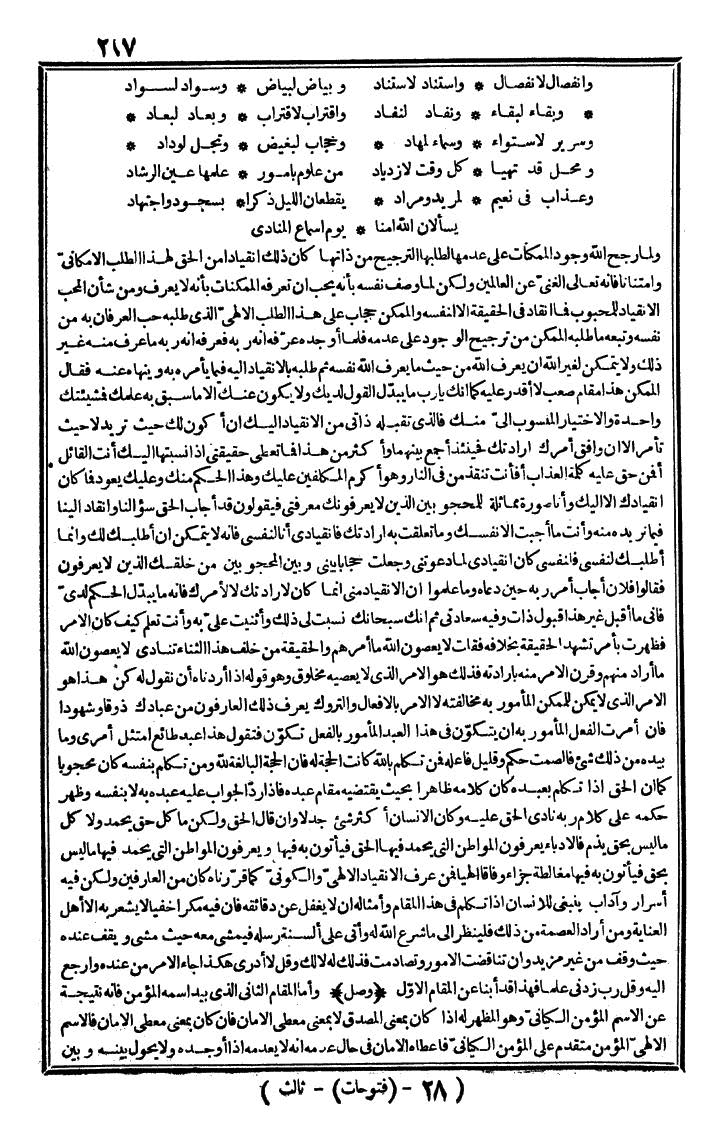 ٢١٧
وانفصال لانفصال * واستناد لاستناد وبياض لبياض * وسواد لسواد
* وبقاء لبقاء * ونفاد لنفاد واقتراب لاقتراب * وبعاد لبعاد *
وسرير لاستواء * وسماء لمهاد * وحجاب لبغيض * وتجل لوداد *
ومحل قد تهيا * كل وقت لازدياد من علوم بامور * علمها عين الرشاد
وعذاب فى نعيم * لمريد ومراد * يقطعان الليل ذكرا * بسجود واجتهاد
يسألان الله امنا * يوم اسماع المنادى
ولما رجح الله وجود الممكنات على عدمها الطلبها الترجيح من ذاتها كان ذلك انقيادا من الحق لهذا الطلب الامكانىّ
وامتنانا فانه تعالى الغنىّ عن العالمين ولكن لما وصف نفسه بأنه يحب ان تعرفه الممكنات بأنه لا يعرف ومن شأن المحب
الانقياد للمحبوب فما انقاد فى الحقيقة الا لنفسه والممكن حجاب على هذا الطلب الالهىّ الذى طلبه حب العرفان به من
نفسه وتبعه ما طلبه الممكن من ترجيح الوجود على عدمه فلما أوجده عرّفه انه ربه فعرفه انه ربه ما عرف منه غير
ذلك ولا يتمكن لغير الله ان يعرف الله من حيث ما يعرف الله نفسه ثم طلبه بالانقياد اليه فيما يأمره به وينهاه عنه فقال
الممكن هذا مقام صعب لا أقدر عليه كما انك يارب ما يبدّل القول لديك ولا يكون عنك الا ما سبق به علمك فشيئتك
واحدة والاختيار المنسوب الىّ منك فالذى تقبله ذاتى من الانقياد اليك ان أكون لك حيث تريد لا حيث
تأمر الا ان وافق أمرك ارادتك فحينئذ أجمع بينهما وأكثر من هذا فما تعطى حقيقتى اذا نسبتها اليك أنت القائل
أفمن حق عليه كلمة العذاب أفأنت تنقذ من فى النار وهو أكرم المكلفين عليك وهذا الحكم منك وعليك يعود فما كان
انقيادك الا اليك وأنا صورة مماثلة للمحجوبين الذين لا يعرفونك معرفتى فيقولون قد أجاب الحق سؤالنا وانقاد الينا
فيما نريده منه وأنت ما أجبت الا نفسك وما تعلقت به ارادتك فانقيادى أنا لنفسى فانه لا يتمكن ان أطلبك لك وانما
أطلبك لنفسى فلنفسى كان انقيادى لما دعوتنى وجعلت حجابا بينى وبين المحجوبين من خلقك الذين لا يعرفون
فقالوا فلان أجاب أمر ربه حين دعاه وما علموا ان الانقياد منى انما كان لارادتك لا لأمرك فانه ما يبدّل الحكم لدىّ
فانى ما أقبل غير هذا قبول ذات وفيه سعادتى ثم انك سبحانك نسبت لى ذلك وأثنيت علىّ به وأنت تعلم كيف كان الامر
فظهرت بأمر تشهد الحقيقة بخلافه فقلت لا يعصون الله ما أمرهم والحقيقة من خلف هذا الثناء تنادى لا يعصون الله
ما أراد منهم وقرن الامر منه بارادته فذلك هو الامر الذى لا يعصيه مخلوق وهو قوله اذا أردناه أن نقول له كن هذا هو
الامر الذى لا يمكن للممكن المأمور به مخالفته لا الامر بالافعال والتروك يعرف ذلك العارفون من عبادك ذوقا وشهودا
فان أمرت الفعل المأمور به ان يتكوّن فى هذا العبد المأمور بالفعل تكوّن فتقول هذا عبد طائع امتثل أمرى وما
بيده من ذلك شئ فالصمت حكم وقليل فاعله فمن تكلم بالله كانت الحجة له فان الحجة البالغة لله ومن تكلم بنفسه كان محجوبا
كما ان الحق اذا تكلم بعبده كان كلامه ظاهرا بحيث يقتضيه مقام عبده فاذا ردّ الجواب عليه عبده به لا بنفسه وظهر
حكمه على كلام ربه نادى الحق عليه وكان الانسان أكثر شئ جدلا وان قال الحق ولكن ما كل حق يحمد ولا كل
ما ليس بحق يذم فالادباء يعرفون المواطن التى يحمد فيها الحق فيأتون به فيها ويعرفون المواطن التى يحمد فيها ما ليس
بحق فيأتون به فيها مغالطة جزاء وفاقا الهيا فمن عرف الانقياد الالهىّ والكونىّ كما قرّرناه كان من العارفين ولكن فيه
أسرار وآداب ينبغى للانسان اذا تكلم فى هذا المقام وأمثاله ان لا يغفل عن دقائقه فان فيه مكرا خفيا لا يشعر به الا أهل
العناية ومن أراد العصمة من ذلك فلينظر الى ما شرع الله له وأتى على ألسنة رسله فيمشى معه حيث مشى ويقف عنده
حيث وقف من غير مزيد وان تناقضت الامور وتصادمت فذلك له لا لك وقل لا أدرى هكذا جاء الامر من عنده وارجع
اليه وقل رب زدنى علما فهذا قد أبنا عن المقام الاوّل ﴿وصل﴾ وأما المقام الثانى الذى بيد اسمه المؤمن فانه نتيجة
عن الاسم المؤمن الكيانىّ وهو المظهر له اذا كان بمعنى المصدق لا بمعنى معطى الامان فان كان بمعنى معطى الامان فالاسم
الالهىّ المؤمن متقدم على المؤمن الكيانىّ فاعطاه الامان فى حال عدمه انه لا يعدمه اذا أوجده ولا يحول بينه وبين
( ٢٨ - (فتوحات) - ثالث )